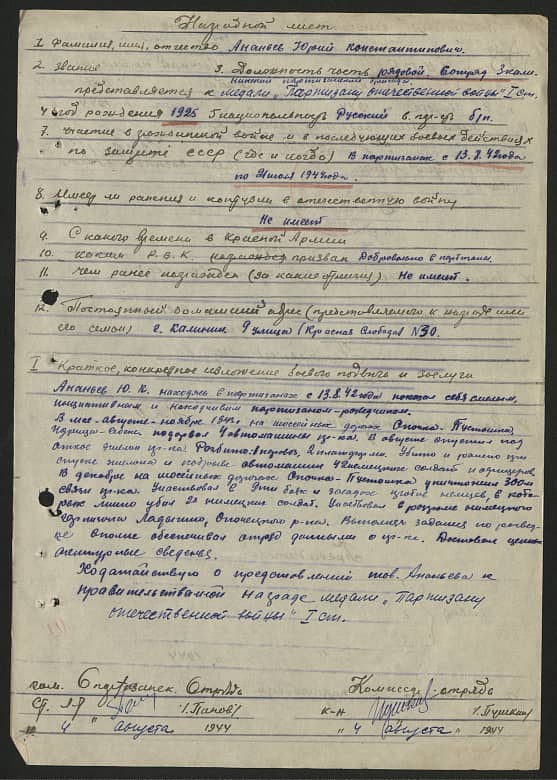 Наградной лист
1. Фамилия, имя, отчество Ананьев Юрий Константинович.
2. Звание 3. Должность часть рядовой. 6 отряд 3 Кали-
нинской партизанской бригады
представляется к медали „Партизану отечественной войны" I ст.
4. год рождения 1925 5 национальность Русский 6. пар-ть б/п.
7. участие в отечественной войне и в последующих боевых действиях
по защите СССР (где и когда) в партизанах с 13.8.42 года
по июля 1944 года.
8. Имеет ли ранения и контузии в отечественную войну
Не имеет
9. С какого времени в Красной Армии
10. каким Р.В.К. призван добровольно в партизаны.
11. чем ранее награжден (за какие отличия) Не имеет.
12. Постоянный домашний адрес (представляемого к награде или
его семьи) г. Калинин 9 улица (Красная Слобода) № 30.
I Краткое, конкретное изложение боевого подвига и заслуги
Ананьев Ю. К. находясь в партизанах с 13.8.42 года показал себя смелым,
инициативным и находчивым партизаном-разведчиком.
В мае-августе-ноябре на шоссейных дорогах Опочка-Пустошка,
Идрица-Себеж подорвал 4 автомашины пр-ка. В августе спустил под
откос эшелон пр-ка Разбито паровоз, платформы. Убито и ранено при
спуске эшелона и подрыве автомашин 42 немецких солдат и офицеров.
В декабре на шоссейных дорогах Опочка-Пустошка уничтожил 300 м
связи пр-ка. Участвовал в боях и засадах против немцев, в кото-
рых лично убил 21 немецких солдат. Участвовал в разгроме немецкого
гарнизона Ладыгино, Опочецкого р-на. Выполняя задания по развед-
ке вполне обеспечивал отряд данными о пр-ке. Доставал ценные
агентурные сведения.
Ходатайствую о представлении тов. Ананьева к
правительственной награде медали „Партизану
отечественной войны" I ст.
ком. 6 партизанск. отряда Комиссар отряда
Ст. л-т /Попов/ к-н /.Пушкин/
4 " августа 1944 " 4 " августа 1944